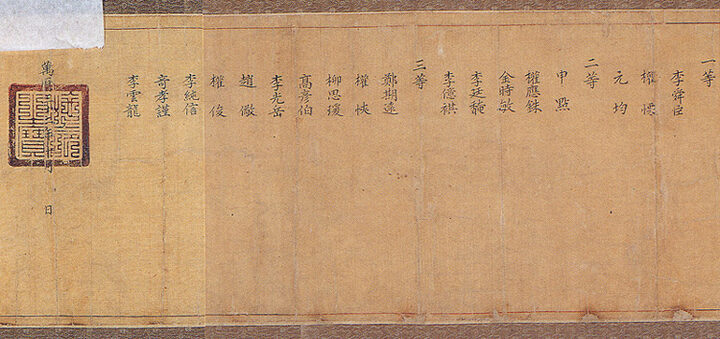 一等
李舜臣
權慄
元均
二等
申點
權應銖
金時敏
李廷馣
李億祺
三等
鄭期遠
權悏
柳思瑗
高彦伯
李光岳
趙儆
權俊
李純信
奇孝謹
李雲龍
萬曆年十月 日